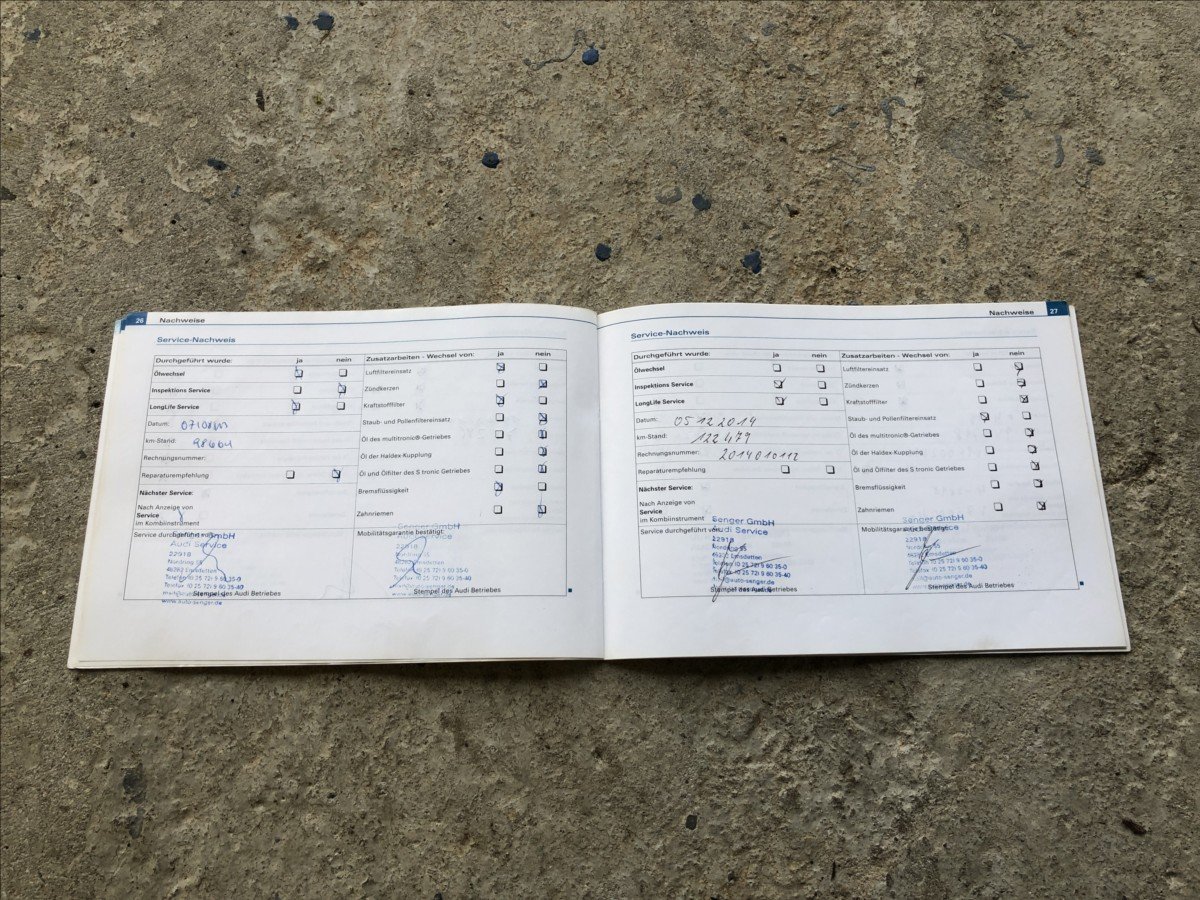 26 Nachweise
Service-Nachweis
Durchgeführt wurde: ja nein
Ölwechsel
Inspektions Service
LongLife Service
Datum:
km-Stand:
Rechnungsnummer:
Reparaturempfehlung
Nächster Service:
Nach Anzeige von
Service
im Kombiinstrument
Service durchgeführt von:
GmbH
Audi Service
22918
Nordring 35
48282 Emsdetten
Telefon (0 25 72) 9 60 35-0
Telefax (0 25 72) 9 60 35-40
www.auto-senger.de
Stempel des Audi Betriebes
Zusatzarbeiten - Wechsel von: ja nein
Luftfiltereinsatz
Zündkerzen
Kraftstofffilter
Staub- und Pollenfiltereinsatz
Öl des multitronic® Getriebes
Öl der Haldex-Kupplung
Öl und Ölfilter des S tronic Getriebes
Bremsflüssigkeit
Zahnriemen
Mobilitätsgarantie bestätigt:
Stempel des Audi Betriebes
Nachweise 27
Service-Nachweis
Durchgeführt wurde: ja nein
Ölwechsel
Inspektions Service
LongLife Service
Datum: 05 12 2014
km-Stand: 122 479
Rechnungsnummer: 2014010112
Reparaturempfehlung
Nächster Service:
Nach Anzeige von
Service
im Kombiinstrument
Service durchgeführt von:
Senger GmbH
Audi Service
22918
Nordring 35
48282 Emsdetten
Telefon (0 25 72) 9 60 35-0
Telefax (0 25 72) 9 60 35-40
mail@auto-senger.de
Stempel des Audi Betriebes
Zusatzarbeiten - Wechsel von: ja nein
Luftfiltereinsatz
Zündkerzen
Kraftstofffilter
Staub- und Pollenfiltereinsatz
Öl des multitronic®-Getriebes
Öl der Haldex-Kupplung
Öl und Ölfilter des S tronic Getriebes
Bremsflüssigkeit
Zahnriemen
Mobilitätsgarantie bestätigt:
Senger GmbH
Audi Service
22918
Nordring 35
48282 Emsdetten
Telefon (0 25 72) 9 60 35-0
Telefax (0 25 72) 9 60 35-40
mail@auto-senger.de
Stempel des Audi Betriebes